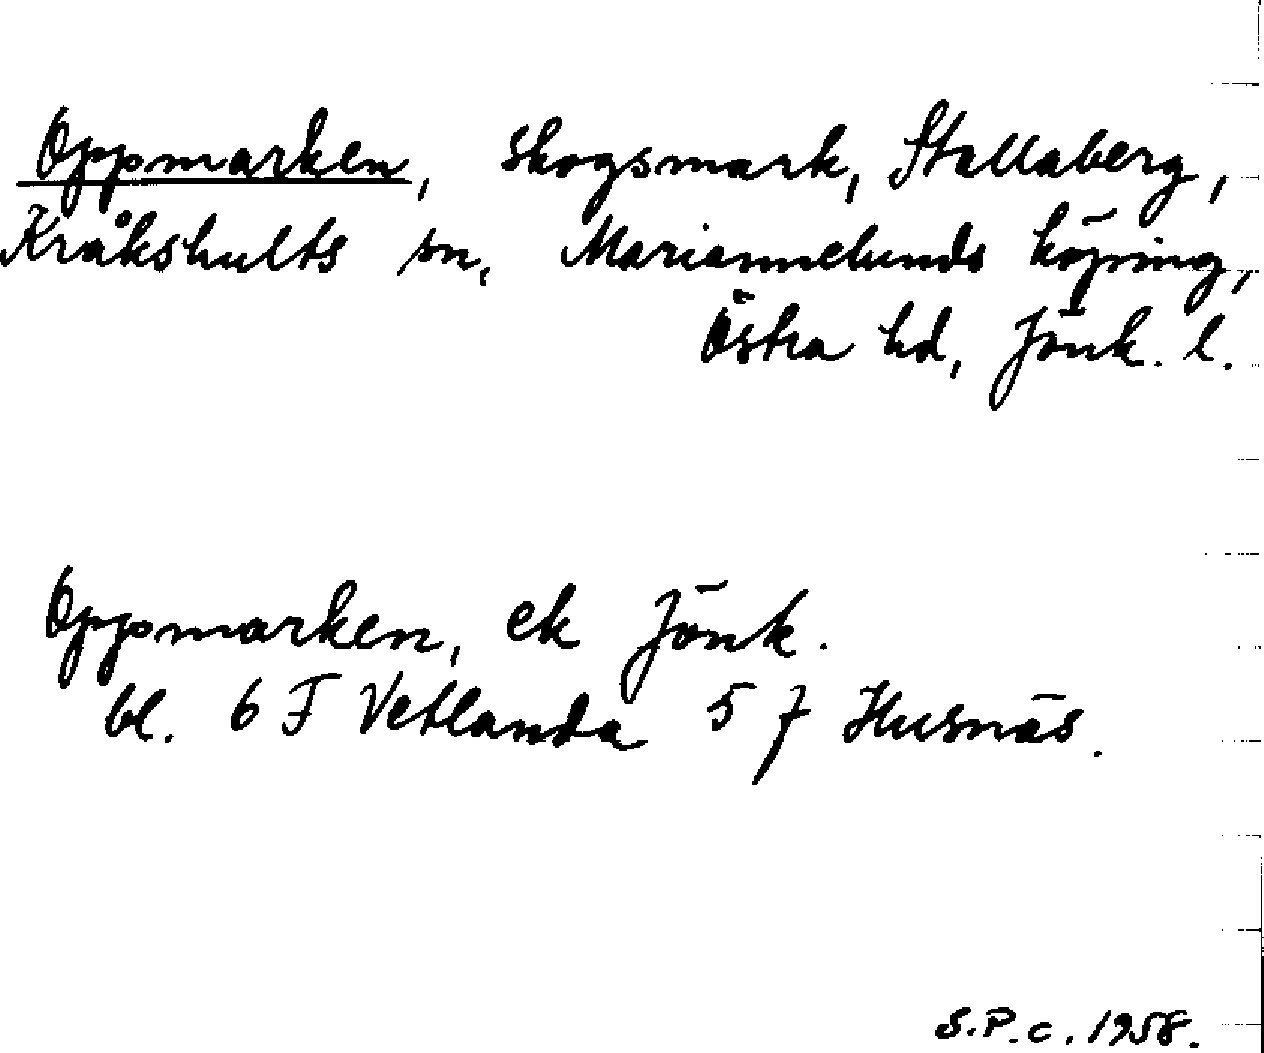 Oppmarken, Skogsmark, Stallaberg,
Kråkshults sn, Mariannelunds köping,
Östra hd, Jönk. l.
Oppmarken, ek Jönk.
bl. 6 F Vetlanda 5 f Husnäs.
S.P.c. 1958.